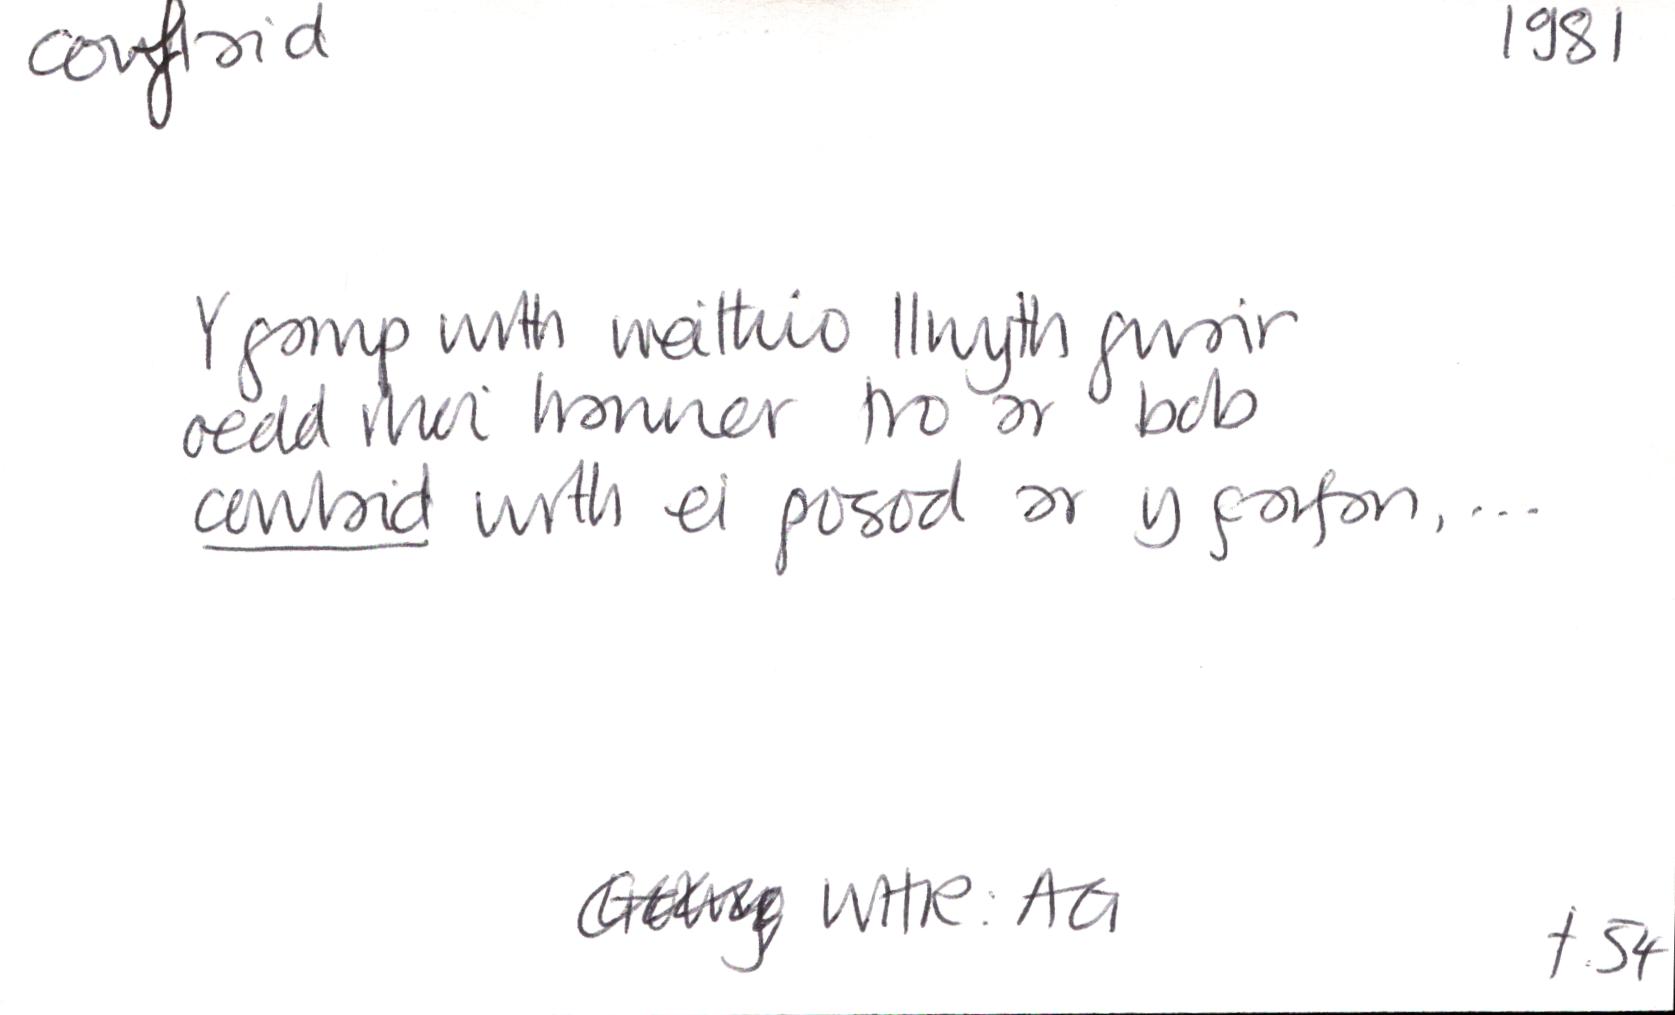 confflaid 1981
Y gamp wrth weithio llwyth gwair
oedd rhoi hanner tro ar bob
conblaid wrth ei gosod ar y gasfan, ...
WHR: AG
t. 54